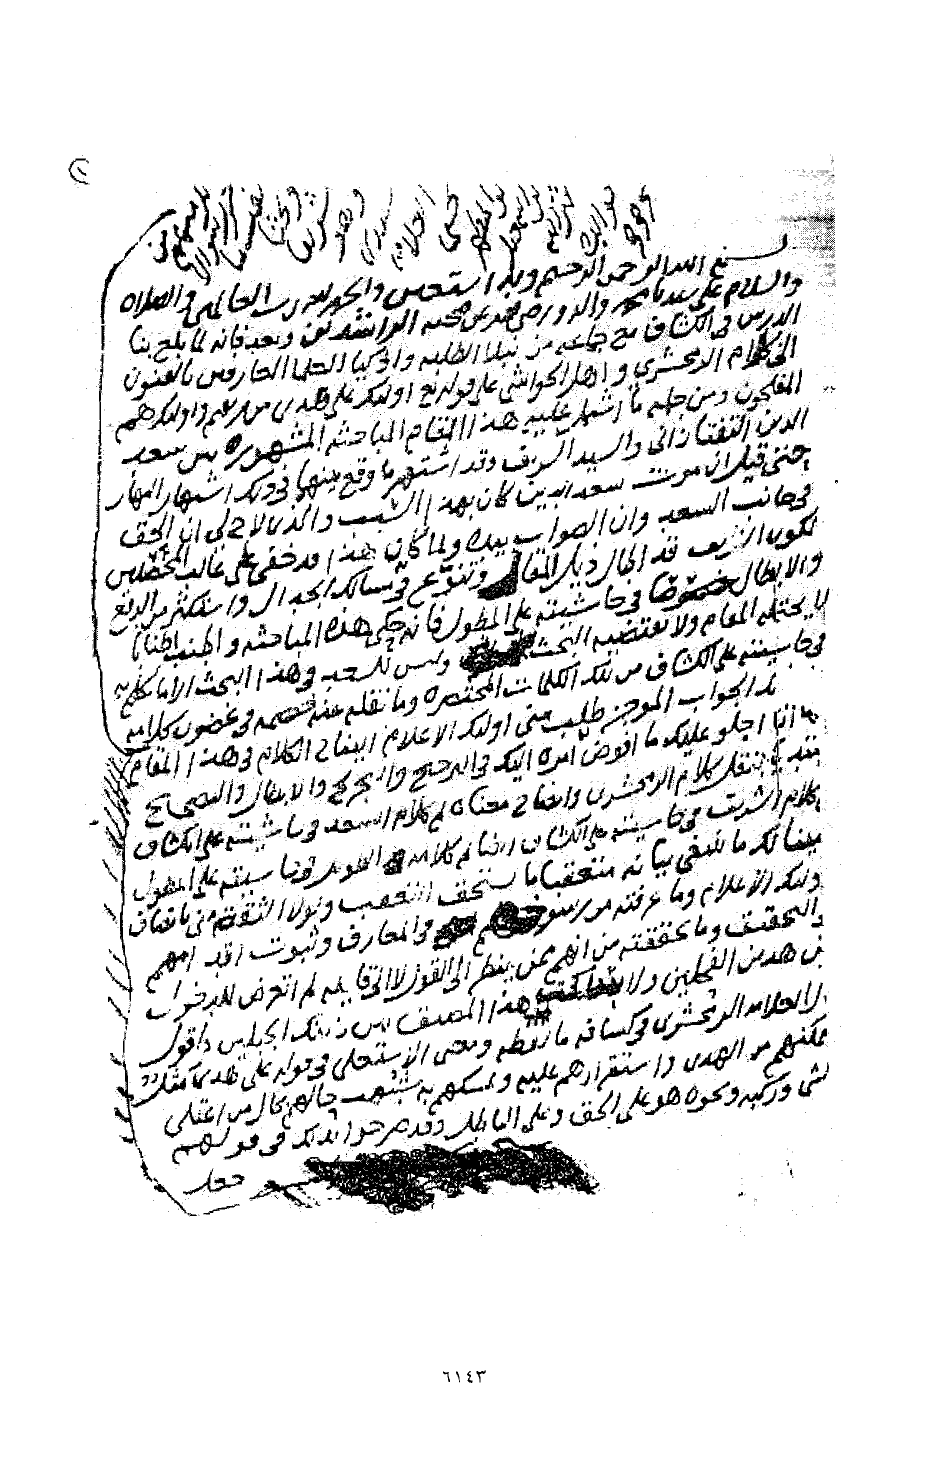 بسم الله الرحمن الرحيم وبه استعين والحمد لله رب العالمين والصلاة
والسلام على سيدنا محمد واله ورضي عن صحبه الراشدين وبعد فانه لما بلغ بنا
الدرس في الكشاف مع جماعة من نبلا الطلبه واذكيا العلما العارفين بالفنون
الى كلام الزمخشري واهل الحواشي على قوله تع اولئك على هدى من ربهم واولئك هم
المفلحون ومن جملة ما اشتمل عليه هذا المقام المباحثه المشهوره بين سعد
الدين التفتازاني والسيد الشريف وقد اشتهر ما وقع بينهما في ذلك اشتهار النهار
حتى قيل ان موت سعد الدين كان بهذا السبب والذي لاح لي ان الحق
في جانب السعد وان الصواب بيده ولما كان هذا قد خفي على غالب المحصلين
لكون الشريف قد اطال ذيل المقال وتنوع في مسالك الجدال واستكثر من الدفع
والابطال خصوصًا في حاشيته على المطول فانه حكى هذه المباحثه واطنب اطنابًا
لا يحتمله المقام ولا تقتضيه البحث وليس للسعد في هذا البحث الا ما تكلم به
في حاشيته على الكشاف من تلك الكلمات المختصره وما نقله عنه خصمه في غضون كلامه
الجواب الموجز طلب مني اولئك الاعلام ايضاح الكلام في هذا المقام
ها انا اجلو عليكم ما افوض امره اليكم في الترجيح والتجريح والابطال والتصحيح
بنقل كلام الزمخشري وايضاح معناه ثم كلام السعد في حاشيته على الكشاف
كلام الشريف في حاشيته على الكشاف ايضا ثم كلامه على المطول
مبينا لكم ما ينبغي بيانه متعقبا ما يستحق التعقب ولولا الثقة مني بانصاف
اولئك الاعلام وما عرفته من رسوخهم في المعارف وثبوت اقدامهم
في التحقيق وما تحققته من انهم ممن ينظر الى القول لا الى قايله لم اتعرض للدخول
بين هذين الفحلين ولا هذا المضيق بين ذينك الجبلين فاقول
قال العلامه الزمخشري في كشافه ما لفظه ومعنى الاستعلى في قوله على هدى مثل
لتمكنهم من الهدى واستقرارهم عليه وتمسكهم به شبهت حالهم بحال من اعتلى
الشي وركبه ونحوه هو على الحق وعلى الباطل وقد صرحوا بذلك في قولهم
جعل
٦١٤٣